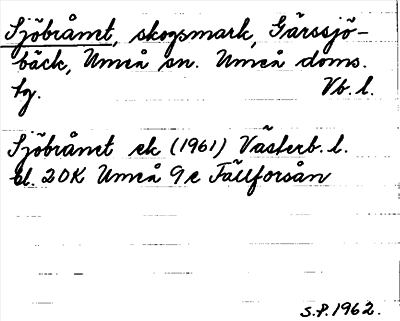 Sjöbråmt, skogsmark, Gärssjö-
bäck, Umeå sn. Umeå doms.
tg. Vb. l.
Sjöbråmet ek (1961) Västerb. l.
bl. 20K Umeå 9e Fällforsån
S.P. 1962.